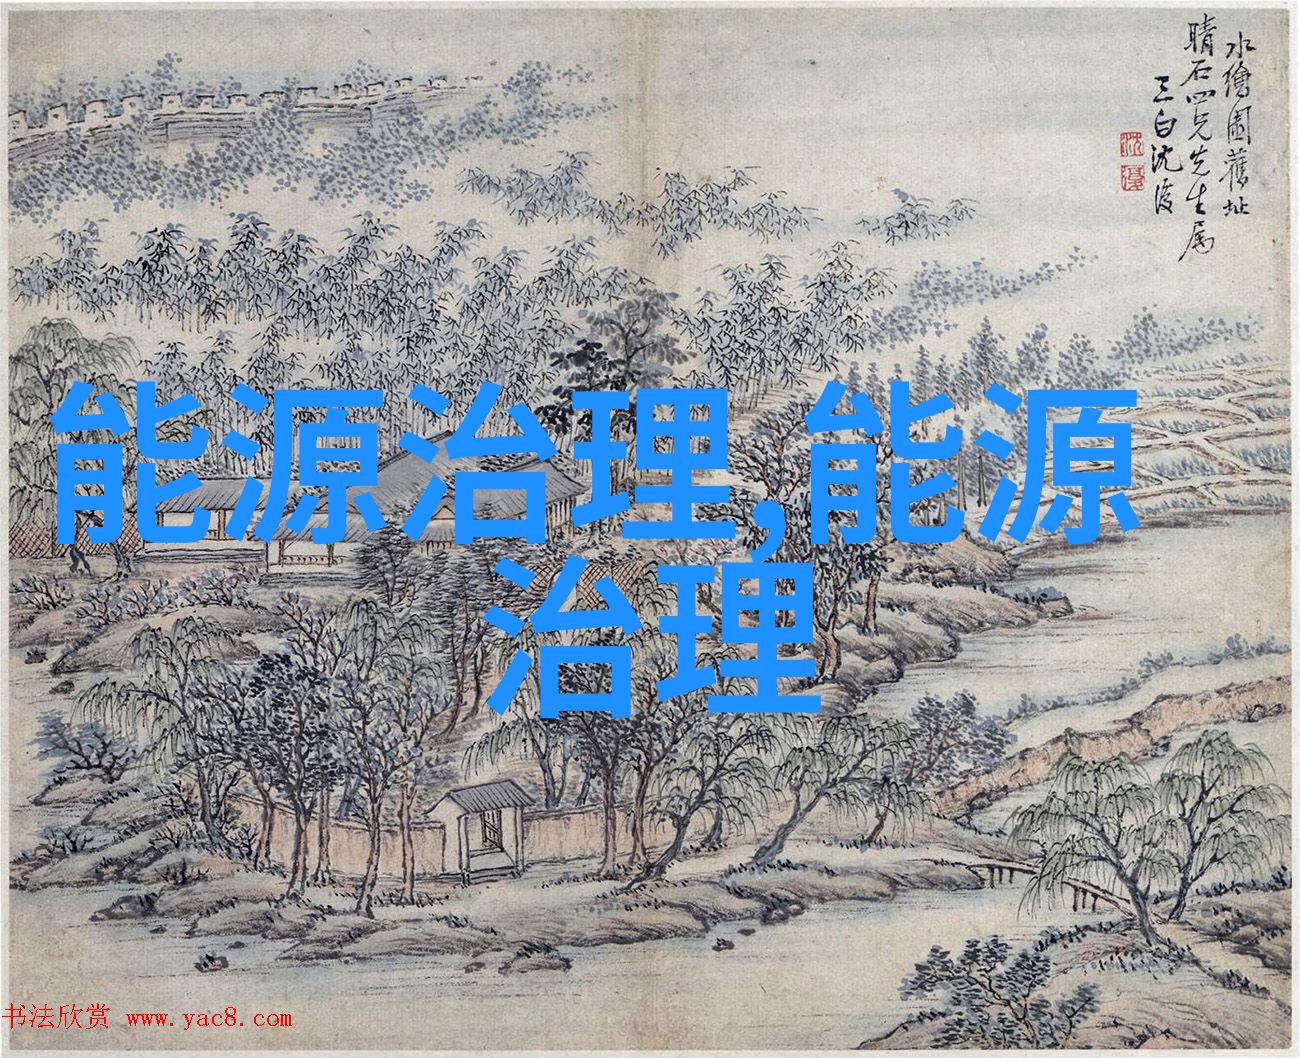 水繪園舊址
晴石四兄先生属
三白沈復
沈
復
能源治理,能源
治理
书法欣赏 www.yac8.com